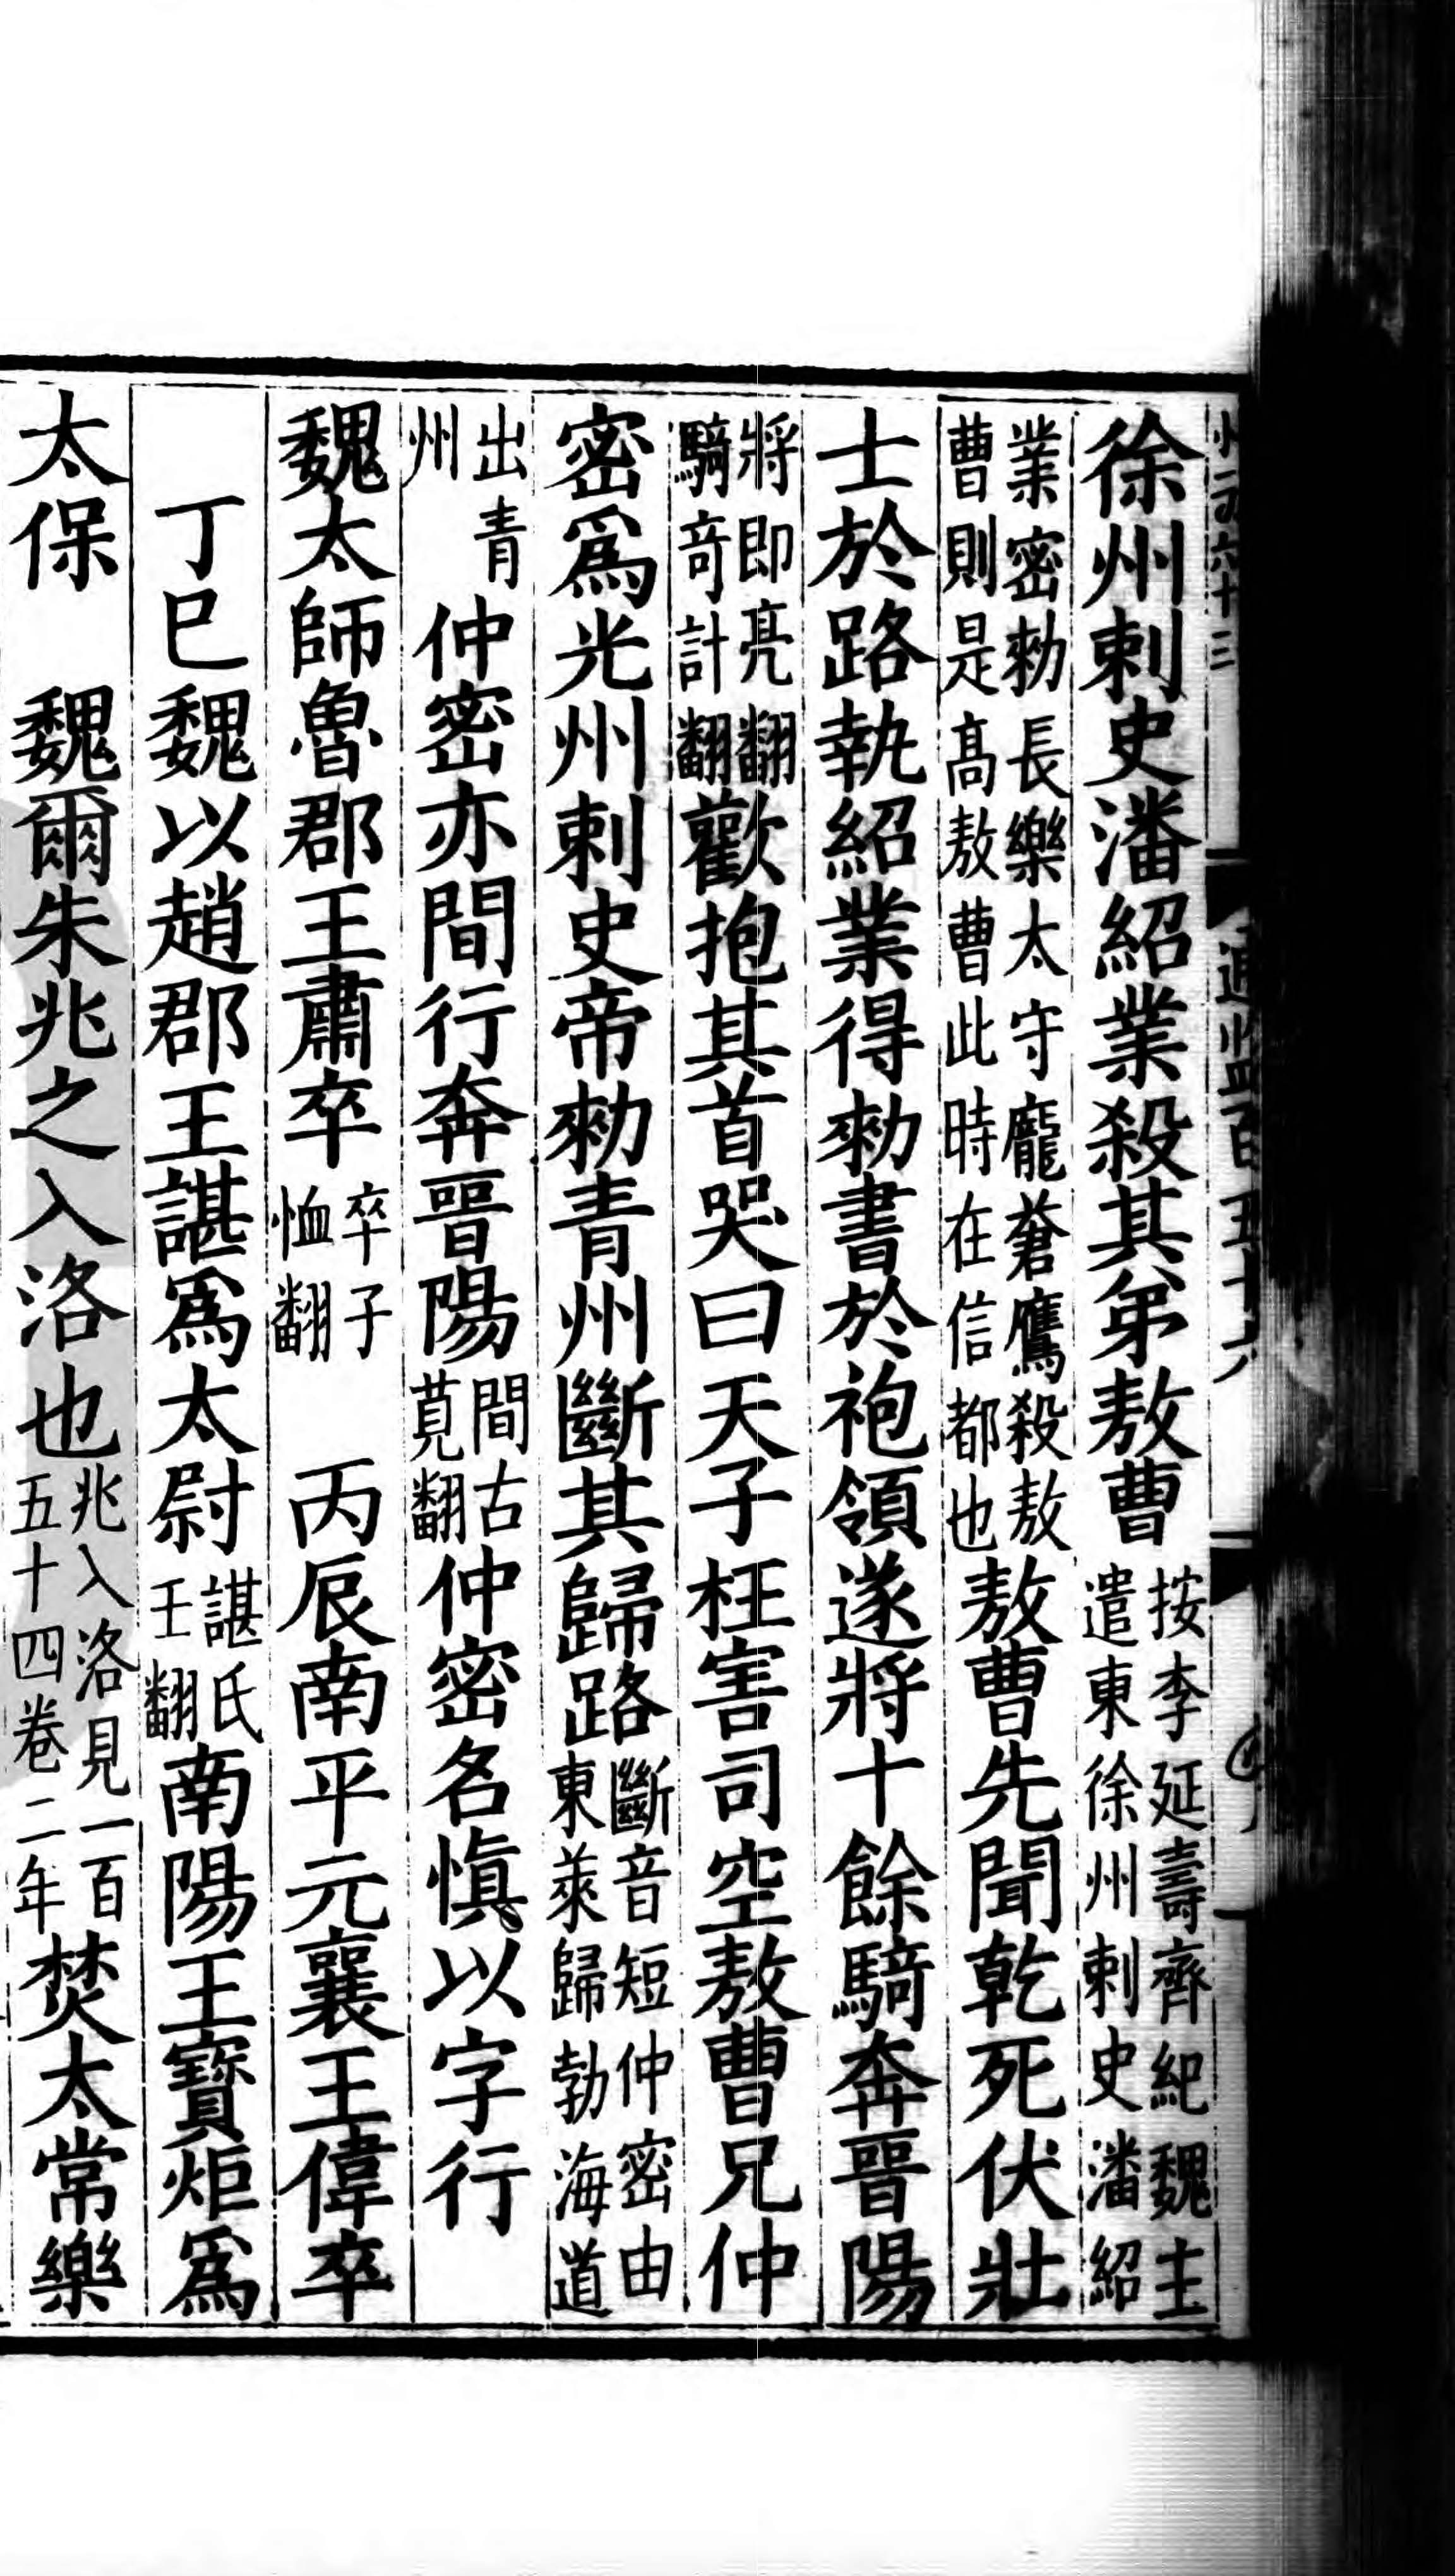 徐州刺史潘紹業殺其弟敖曹按李延壽齊紀魏主遣東徐州刺史潘紹
業密勑長樂太守龐蒼鷹殺敖曹則是髙敖曹此時在信都也敖曹先聞乾死伏壯
士於路執紹業得勑書於袍領遂將十餘騎奔晉陽
將即亮翻騎奇計翻歡抱其首哭曰天子枉害司空敖曹兄仲
密爲光州刺史帝勑青州斷其歸路斷音短仲密由東萊歸勃海道
出青州仲密亦間行奔晉陽間古莧翻仲密名愼以字行
魏太師魯郡王肅卒卒子恤翻 丙辰南平元襄王偉卒
丁巳魏以趙郡王諶爲太尉諶氏壬翻南陽王寶炬爲
太保 魏爾朱兆之入洛也兆入洛見一百五十四卷二年焚太常樂